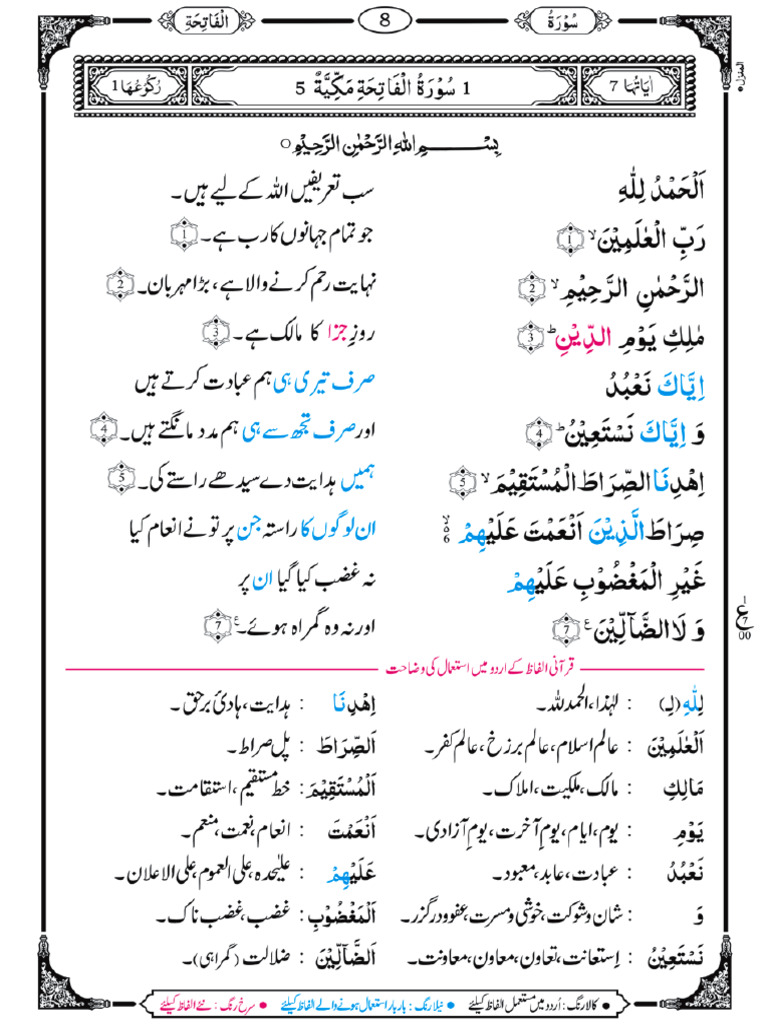 سُوْرَةُ 8 اَلْفَاتِحَةِ
اٰيَاتُهَا 7 1 سُوْرَةُ الْفَاتِحَةِ مَكِّيَّةٌ 5 رُكُوْعُهَا 1
بِسْمِ اللهِ الرَّحْمٰنِ الرَّحِيْمِ
اَلْحَمْدُ لِلّٰهِ سب تعریفیں اللہ کے لیے ہیں۔
رَبِّ الْعٰلَمِيْنَ ۙ 1 جو تمام جہانوں کا رب ہے۔ 1
الرَّحْمٰنِ الرَّحِيْمِ ۙ 2 نہایت رحم کرنے والا ہے، بڑا مہربان۔ 2
مٰلِكِ يَوْمِ الدِّيْنِ ؕ 3 روزِ جزا کا مالک ہے۔ 3
اِيَّاكَ نَعْبُدُ صرف تیری ہی ہم عبادت کرتے ہیں
وَ اِيَّاكَ نَسْتَعِيْنُ ؕ 4 اور صرف تجھ سے ہی ہم مدد مانگتے ہیں۔ 4
اِهْدِنَا الصِّرَاطَ الْمُسْتَقِيْمَ ۙ 5 ہمیں ہدایت دے سیدھے راستے کی۔ 5
صِرَاطَ الَّذِيْنَ اَنْعَمْتَ عَلَيْهِمْ 6 ان لوگوں کا راستہ جن پر تو نے انعام کیا
غَيْرِ الْمَغْضُوْبِ عَلَيْهِمْ نہ غضب کیا گیا ان پر
وَ لَا الضَّآلِّيْنَ 7 اور نہ وہ گمراہ ہوئے۔ 7
قرآنی الفاظ کے اردو میں استعمال کی وضاحت
لِلّٰهِ (لِ) : لہٰذا، الحمدللہ۔ اِهْدِنَا : ہدایت، ہادئ برحق۔
اَلْعٰلَمِيْنَ : عالم اسلام، عالم برزخ، عالم کفر۔ اَلصِّرَاطَ : پل صراط۔
مَالِكِ : مالک، ملکیت، املاک۔ اَلْمُسْتَقِيْمَ : خط مستقیم، استقامت۔
يَوْمِ : یوم، ایام، یومِ آخرت، یومِ آزادی۔ اَنْعَمْتَ : انعام، نعمت، منعم۔
نَعْبُدُ : عبادت، عابد، معبود۔ عَلَيْهِمْ : علیٰحدہ، علی العموم، علی الاعلان۔
وَ : شان و شوکت، خوشی و مسرت، عفو و درگزر۔ اَلْمَغْضُوْبِ : غضب، غضب ناک۔
نَسْتَعِيْنُ : اِستعانت، تعاون، معاون، معاونت۔ اَلضَّآلِّيْنَ : ضلالت (گمراہی)۔
• کالا رنگ : اُردو میں مستعمل الفاظ کیلئے • نیلا رنگ : بار بار استعمال ہونے والے الفاظ کیلئے • سرخ رنگ : نئے الفاظ کیلئے